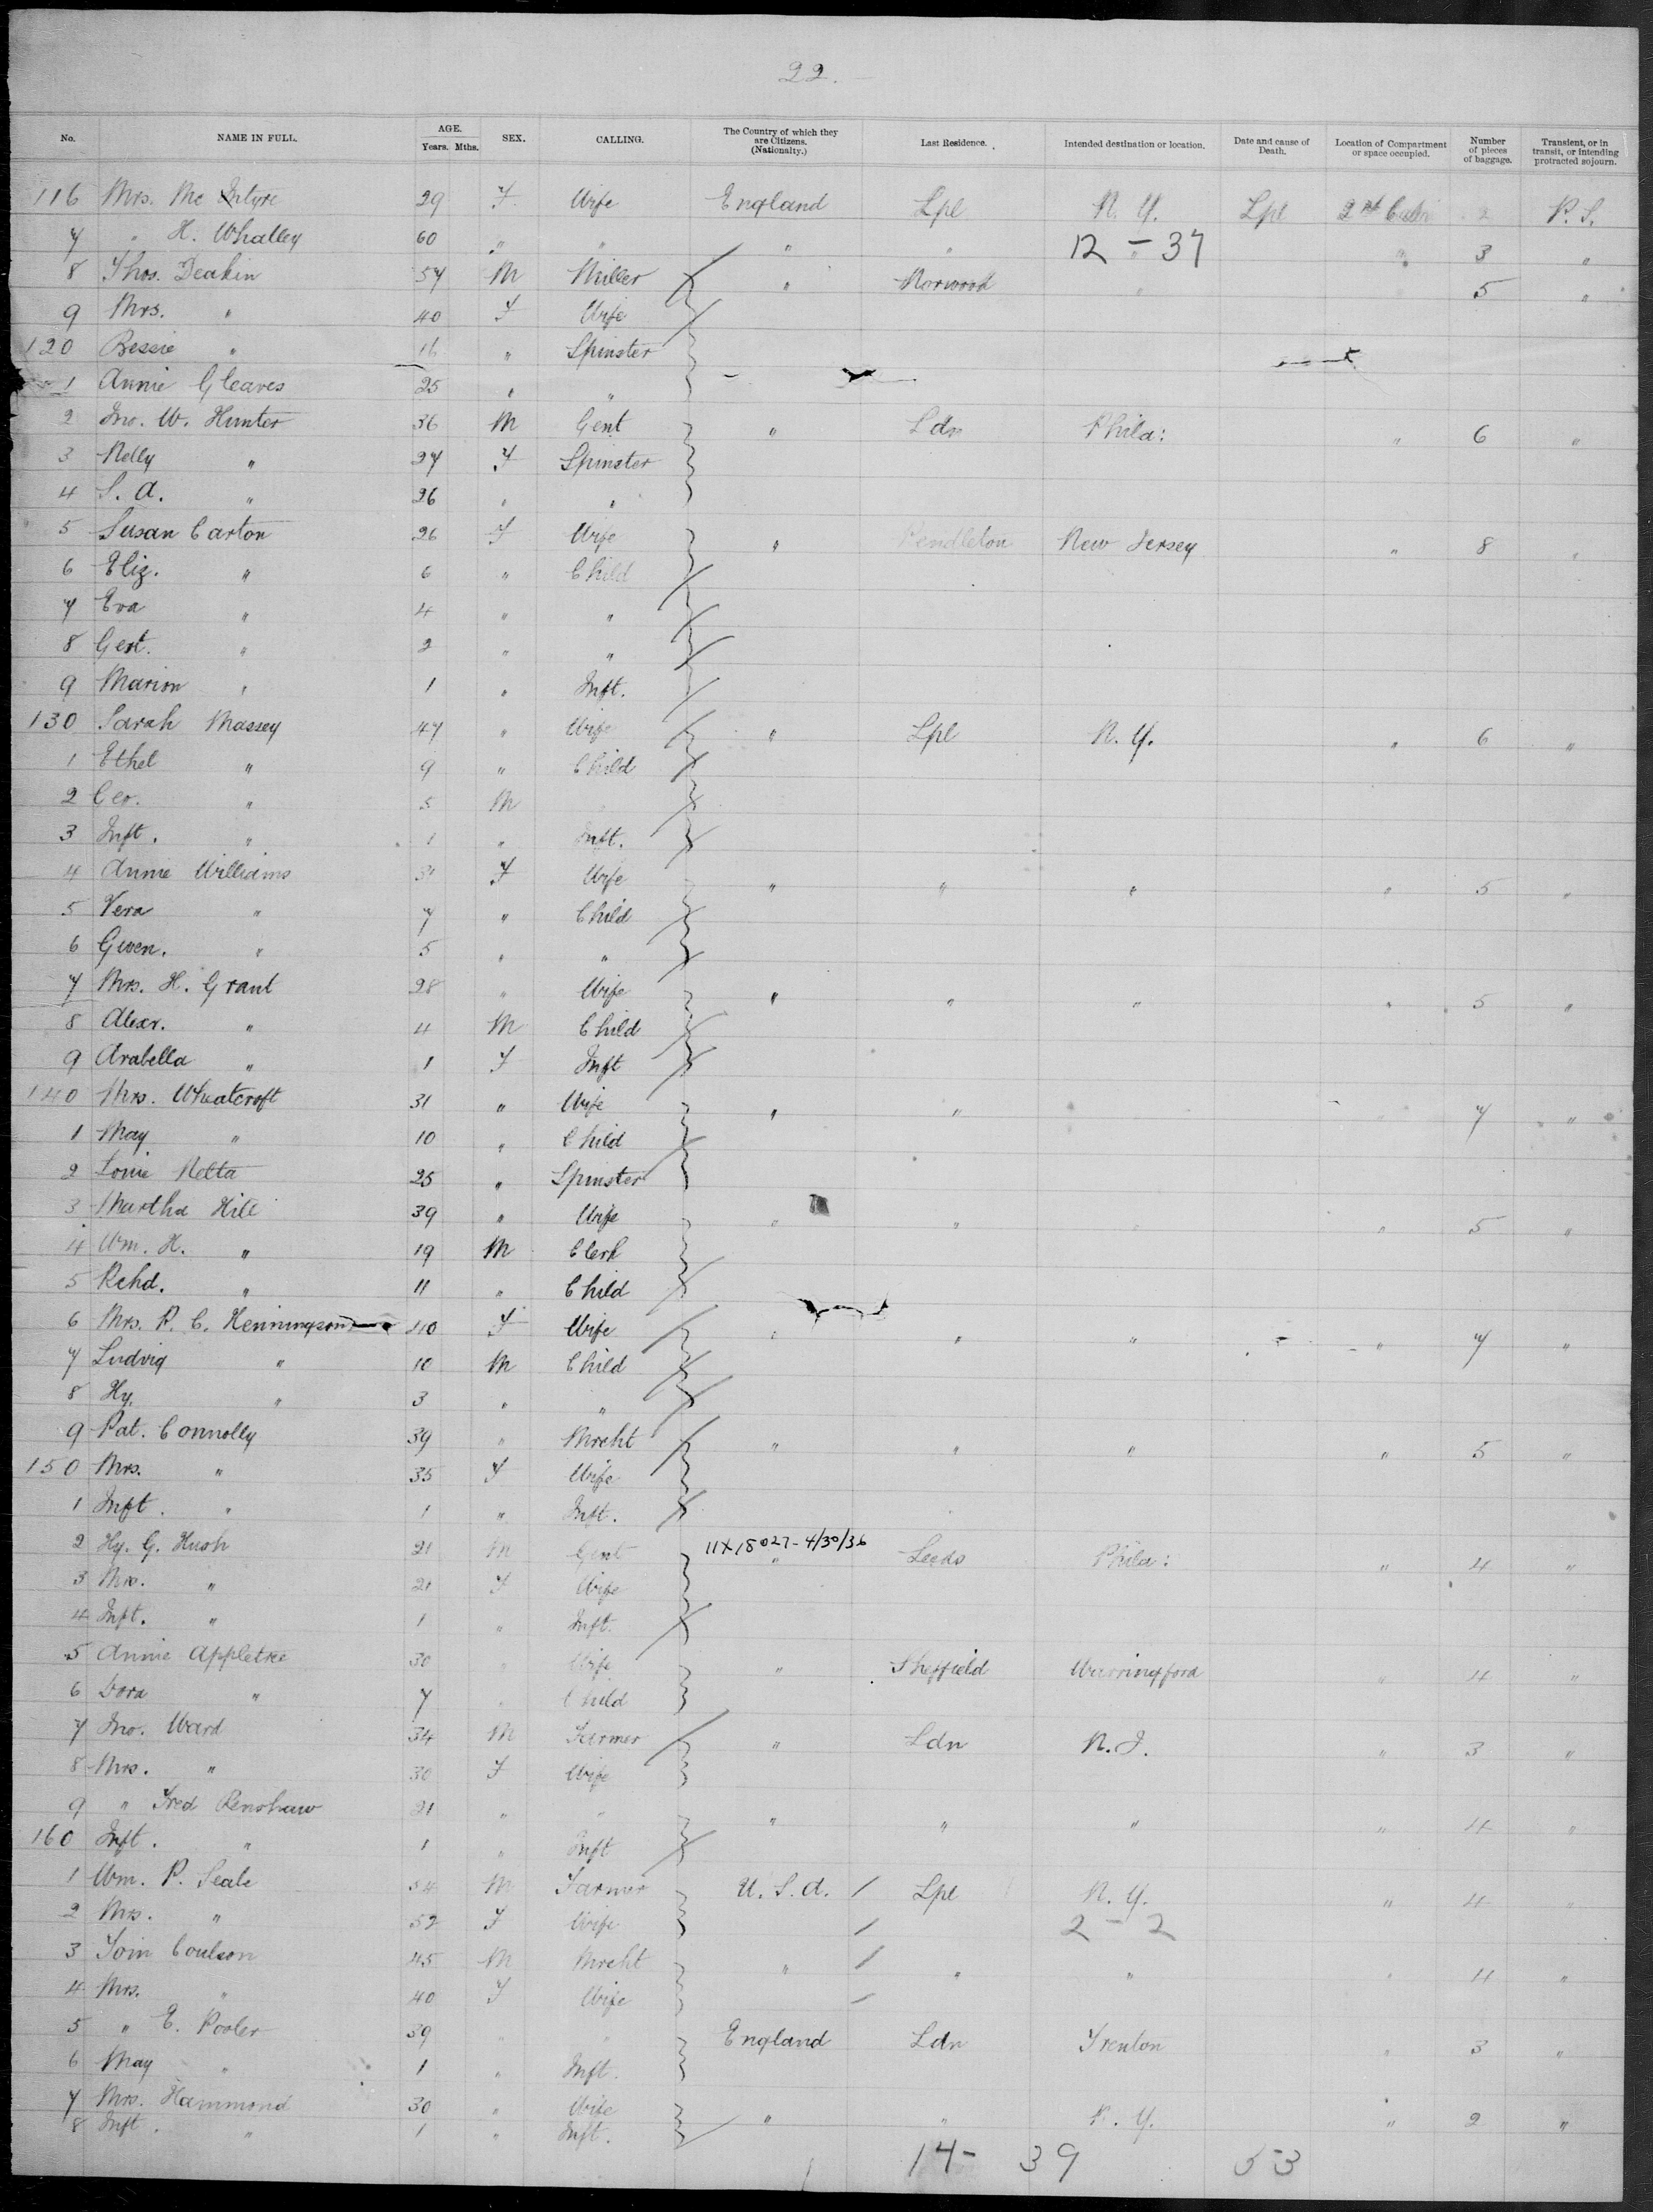 22.
No. NAME IN FULL. AGE. Years. Mths. SEX. CALLING. The Country of which they are Citizens. (Nationalty.) Last Residence. Intended destination or location. Date and cause of Death. Location of Compartment or space occupied. Number of pieces of baggage. Transient, or in transit, or intending protracted sojourn.
116 Mrs. Mc Intyre 29 F Wife England Lpl N. Y. Lpl 2nd Cabin 2 P. S.
7 " H. Whalley 60 " " " " 12 - 37 " 3 "
8 Thos. Deakin 57 M Miller " Norwood " 5 "
9 Mrs. " 40 F Wife
120 Bessie " 16 " Spinster
1 Annie Gleaves 25 " "
2 Jno. W. Hunter 36 M Gent " Ldn Phila: " 6 "
3 Nelly " 27 F Spinster
4 S. A. " 26 " "
5 Susan Carton 26 F Wife " Pendleton New Jersey " 8 "
6 Eliz. " 6 " Child
7 Eva " 4 " "
8 Gert. " 2 " "
9 Marion " 1 " Inft.
130 Sarah Massey 47 " Wife " Lpl N. Y. " 6 "
1 Ethel " 9 " Child
2 Geo. " 5 M
3 Inft. " 1 " Inft.
4 Annie Williams 31 F Wife " " " " 5 "
5 Vera " 7 " Child
6 Gwen. " 5 " "
7 Mrs. H. Grant 28 " Wife " " " " 5 "
8 Alexr. " 4 M Child
9 Arabella " 1 F Inft
140 Mrs. Wheatcroft 31 " Wife " " 7 "
1 May " 10 " Child
2 Louie Netta 25 " Spinster
3 Martha Hill 39 " Wife " " " 5 "
4 Wm. H. " 19 M Clerk
5 Rchd. " 11 " Child
6 Mrs. P. C. Henningson 40 F Wife " " " " 7 "
7 Ludvig " 10 M Child
8 Hy. " 3 " "
9 Pat. Connolly 39 " Mrcht " " " " 5 "
150 Mrs. " 35 F Wife
1 Inft. " 1 " Inft.
2 Hy. G. Hush 21 M Gent 11X18027-4/30/36 " Leeds Phila: " 4 "
3 Mrs. " 21 F Wife
4 Inft. " 1 " Inft.
5 Annie Appletree 30 " Wife " Sheffield Warringford " 4 "
6 Dora " 7 " Child
7 Jno. Ward 34 M Farmer " Ldn N. J. " 3 "
8 Mrs. " 30 F Wife
9 " Fred Renshaw 21 " " " " " " 4 "
160 Inft. " 1 " Inft
1 Wm. P. Seale 54 M Farmer U. S. A. Lpl N. Y. " 4 "
2 Mrs. " 52 F Wife 2 - 2
3 Tom Coulson 45 M Mrcht " " " " 4 "
4 Mrs. " 40 F Wife
5 " E. Pooler 39 " " England Ldn Trenton " 3 "
6 May " 1 " Inft.
7 Mrs. Hammond 30 " Wife " " N. Y. " 2 "
8 Inft. " 1 " Inft.
14- 39 53